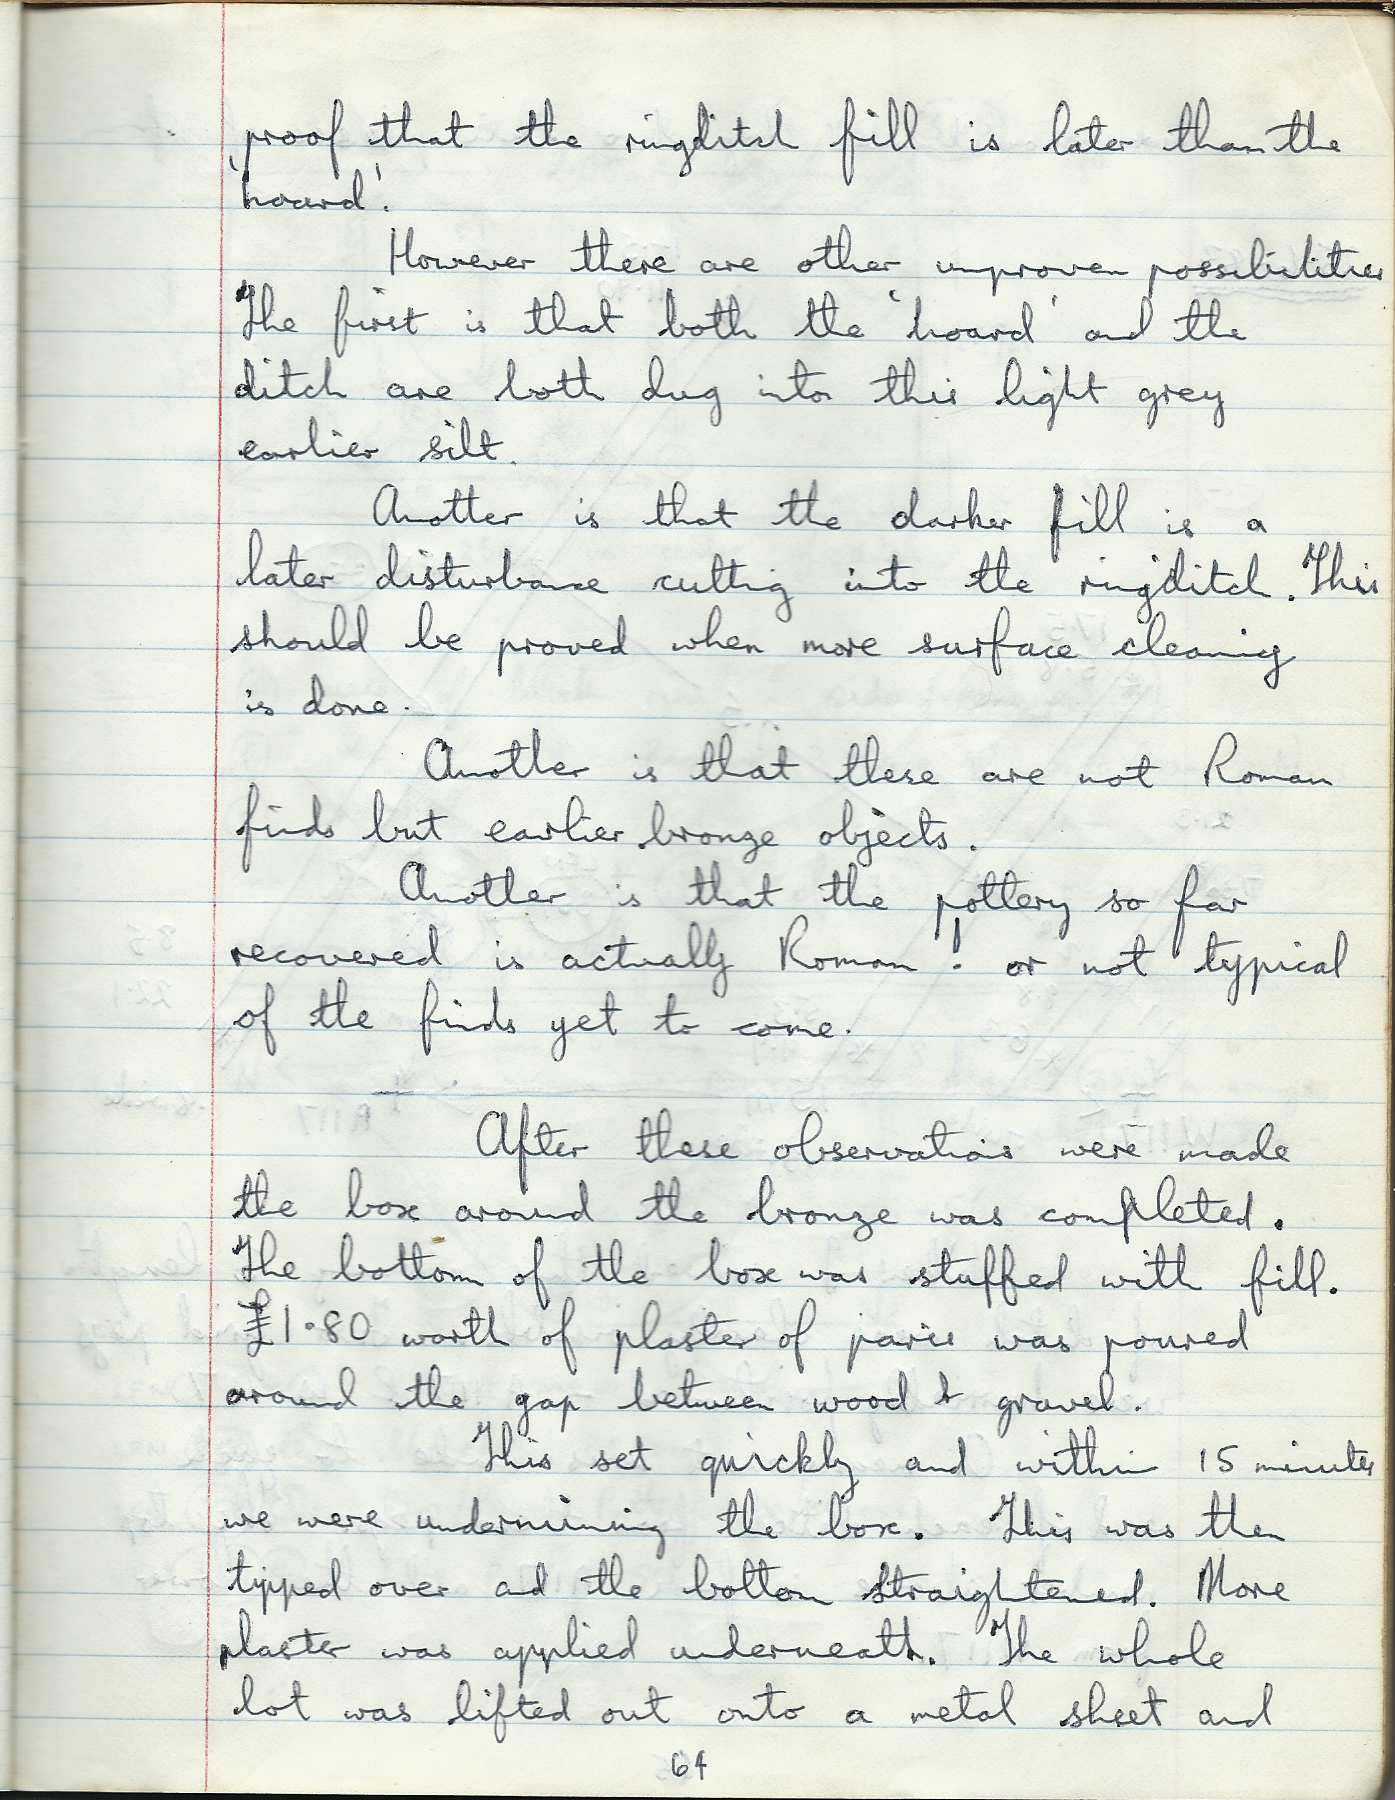 proof that the ringditch fill is later than the
'hoard'.
However there are other unproven possibilities
The first is that both the 'hoard' and the
ditch are both dug into this light grey
earlier silt.
Another is that the darker fill is a
later disturbance cutting into the ringditch. This
should be proved when more surface cleaning
is done.
Another is that these are not Roman
finds but earlier bronze objects.
Another is that the pottery so far
recovered is actually Roman! or not typical
of the finds yet to come.
After these observations were made
the box around the bronze was completed.
The bottom of the box was stuffed with fill.
£1.80 worth of plaster of paris was poured
around the gap between wood & gravel.
This set quickly and within 15 minutes
we were undermining the box. This was then
tipped over and the bottom straightened. More
plaster was applied underneath. The whole
lot was lifted out onto a metal sheet and
64